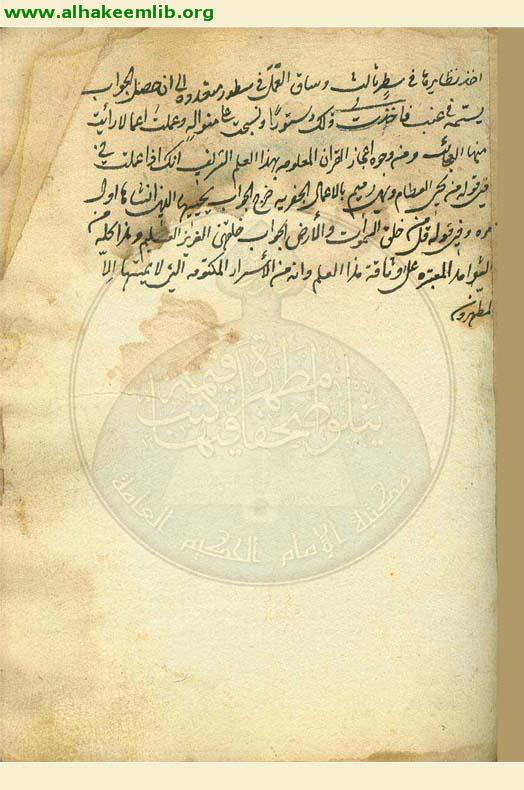 www.alhakeemlib.org
اخذ نظايرها في سطر ثالث وساق العمل في سطور متعدده الى ان حصل الجواب
يستمه في عنب فاخذت ذلك دستورًا ونسجت على منواله وعملت اعمالا رأيت
منها العجائب ومن وجوه اعجاز القران المعلومه بهذا العلم الشريف انك اذا عملت في
قوله من يحيي العظام وهي رميم بالاعمال الجفريه خرج الجواب يحييها الذي انشاها اول
مره وفي قوله قل من خلق السموات والأرض الجواب خلقهن العزيز العليم وهذا كله من
الشواهد المعتبره على وثاقة هذا العلم وانه من الأسرار المكتومه التي لا يمسها إلا
المطهرون
يتلو صحفا مطهرة فيها كتب قيمة
مكتبة الإمام الحكيم العامة